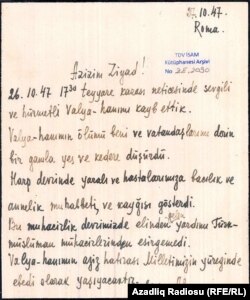 10.47.
Roma.
TDV İSAM
Kütüphanesi Arşivi
No 2E.2030
Azizim Ziyad!
26.10.47 1730 teyyare kazası neticesinde sevgili
ve hürmetli Valya-hanımı kayb ettik.
Valya-hanımın ölümü beni ve vatandaşlarımı derin
bir gamla yes ve kedere düşürdü.
Harg devrinde yaralı ve hastalarımıza bacılık ve
annelik muhabbeti ve kaygısı gösterdi.
Bu muhacizlik devrimizde elinden gelen yardımı Türk-
müslüman muhacizlerinden esirgemedi.
Valya-hanımın aziz hatirası Milletimizin yüreginde
ebedi olarak yaşıyacaktır.
Azadlıq Radiosu (RFE/RL)